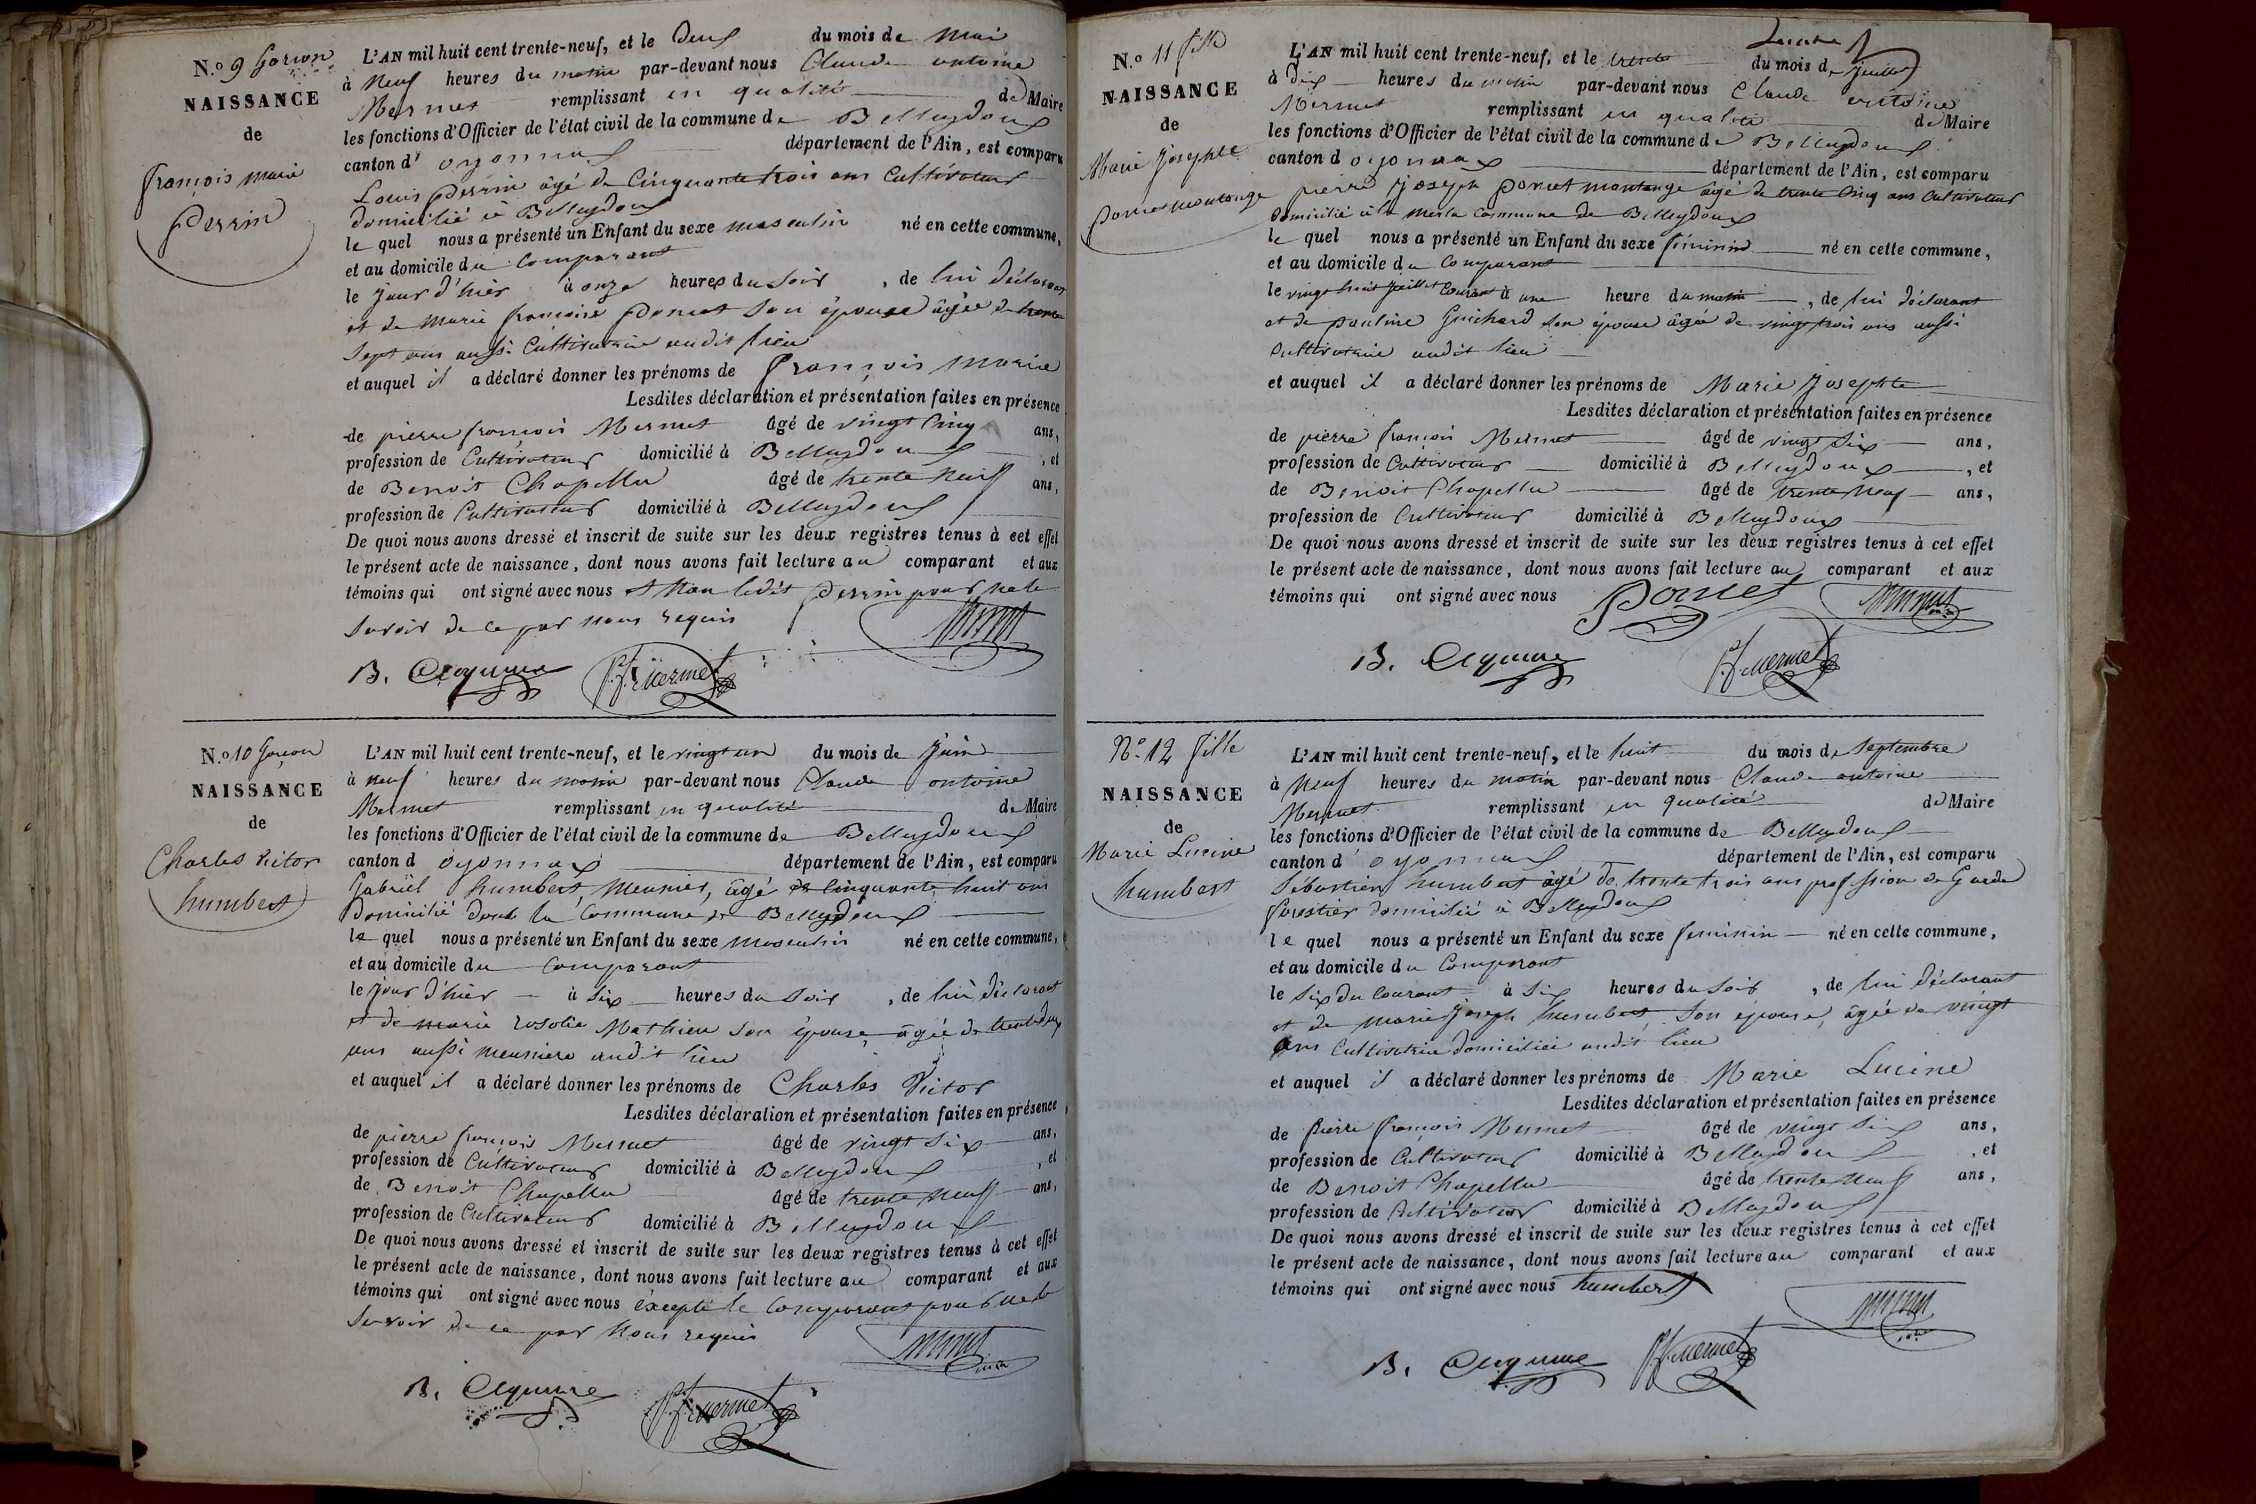 N.o 9 Garson
NAISSANCE
de
françois marie
Perrin
L'AN mil huit cent trente-neuf, et le Deux du mois de Mai
à Neuf heures du matin par-devant nous Claude antoine
Mermet remplissant en qualité de Maire
les fonctions d'Officier de l'état civil de la commune de Belleydoux
canton d' oyonnax département de l'Ain, est comparu
Louis Perrin âgé de Cinquante trois ans Cultivateur
domicilié à Belleydoux
le quel nous a présenté un Enfant du sexe masculin né en cette commune,
et au domicile du Comparant
le Jour d'hier à onze heures du soir, de lui déclarant
et de marie françoise Poncet son épouse âgée de trente
Sept ans aussi Cultivatrice audit lieu
et auquel il a déclaré donner les prénoms de françois marie
Lesdites déclaration et présentation faites en présence
de pierre françois Mermet âgé de vingt Cinq ans,
profession de Cultivateur domicilié à Belleydoux, et
de Benoit Chapellu âgé de trente Neuf ans,
profession de Cultivateur domicilié à Belleydoux
De quoi nous avons dressé et inscrit de suite sur les deux registres tenus à cet effet
le présent acte de naissance, dont nous avons fait lecture au comparant et aux
témoins qui ont signé avec nous et Non ledit Perrin pour ne le
Savoir de ce par nous requis
Mermet
B. P.f. Mermet
N.o 10 Garçon
NAISSANCE
de
Charles Victor
humbert
L'AN mil huit cent trente-neuf, et le vingt un du mois de Juin
à neuf heures du matin par-devant nous Claude antoine
Mermet remplissant en qualité de Maire
les fonctions d'Officier de l'état civil de la commune de Belleydoux
canton d oyonnax département de l'Ain, est comparu
Gabriel humbert, Meunier, âgé de Cinquante huit ans
Domicilié dans la Commune de Belleydoux
le quel nous a présenté un Enfant du sexe masculin né en cette commune,
et au domicile du Comparant
le Jour d'hier à Six heures du soir, de lui déclarant
et de marie rosalie Mathieu son épouse âgée de trente deux
ans aussi meuniere audit lieu
et auquel il a déclaré donner les prénoms de Charles Victor
Lesdites déclaration et présentation faites en présence
de pierre françois Mermet âgé de vingt six ans,
profession de Cultivateur domicilié à Belleydoux, et
de Benoit Chapellu âgé de trente neuf ans,
profession de Cultivateur domicilié à Belleydoux
De quoi nous avons dressé et inscrit de suite sur les deux registres tenus à cet effet
le présent acte de naissance, dont nous avons fait lecture au comparant et aux
témoins qui ont signé avec nous excepté le Comparant pour ne le
Savoir de ce par Nous requis
Mermet
B. P.f. Mermet
N.o 11 fille
NAISSANCE
de
Marie Josephte
Poncet montange
L'AN mil huit cent trente-neuf, et le trente du mois de Juillet
à dix heures du matin par-devant nous Claude antoine
Mermet remplissant en qualité de Maire
les fonctions d'Officier de l'état civil de la commune de Belleydoux
canton d oyonnax département de l'Ain, est comparu
pierre Joseph Poncet montange âgé de trente Cinq ans Cultivateur
Domicilié à la Commune de Belleydoux
le quel nous a présenté un Enfant du sexe féminin né en cette commune,
et au domicile du Comparant
le vingt huit Juillet Courant à une heure du matin, de lui déclarant
et de pauline Guichard son épouse âgée de vingt trois ans aussi
Cultivatrice audit lieu
et auquel il a déclaré donner les prénoms de Marie Josephte
Lesdites déclaration et présentation faites en présence
de pierre françois Mermet âgé de vingt Six ans,
profession de Cultivateur domicilié à Belleydoux, et
de Benoit Chapellu âgé de trente Neuf ans,
profession de Cultivateur domicilié à Belleydoux
De quoi nous avons dressé et inscrit de suite sur les deux registres tenus à cet effet
le présent acte de naissance, dont nous avons fait lecture au comparant et aux
témoins qui ont signé avec nous Poncet Mermet
B. P.f. Mermet
N.o 12 fille
NAISSANCE
de
Marie Lucine
humbert
L'AN mil huit cent trente-neuf, et le huit du mois de Septembre
à Neuf heures du matin par-devant nous Claude antoine
Mermet remplissant en qualité de Maire
les fonctions d'Officier de l'état civil de la commune de Belleydoux
canton d oyonnax département de l'Ain, est comparu
Sébastien humbert âgé de trente trois ans profession de Garde
forestier domicilié à Belleydoux
le quel nous a présenté un Enfant du sexe feminin né en cette commune,
et au domicile du Comparant
le Six du Courant à Six heures du soir, de lui déclarant
et de marie Joseph humbert Son épouse, âgée de vingt
ans Cultivatrice domiciliée audit lieu
et auquel il a déclaré donner les prénoms de Marie Lucine
Lesdites déclaration et présentation faites en présence
de pierre françois Mermet âgé de vingt Six ans,
profession de Cultivateur domicilié à Belleydoux, et
de Benoit Chapellu âgé de trente Neuf ans,
profession de Cultivateur domicilié à Belleydoux
De quoi nous avons dressé et inscrit de suite sur les deux registres tenus à cet effet
le présent acte de naissance, dont nous avons fait lecture au comparant et aux
témoins qui ont signé avec nous humbert
Mermet
B. P.f. Mermet